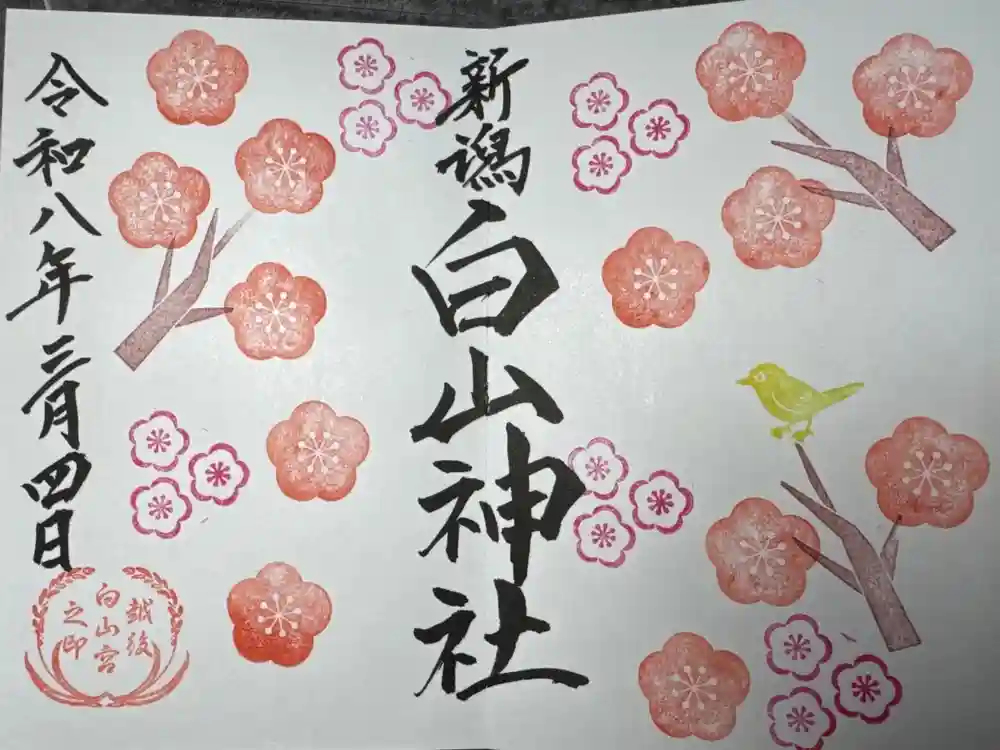 新潟
白山神社
令和八年二月四日
越後
白山宮
之印